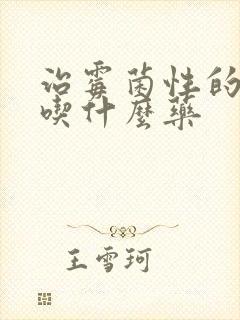 治霉菌性的
喫什麼藥
王雪珂